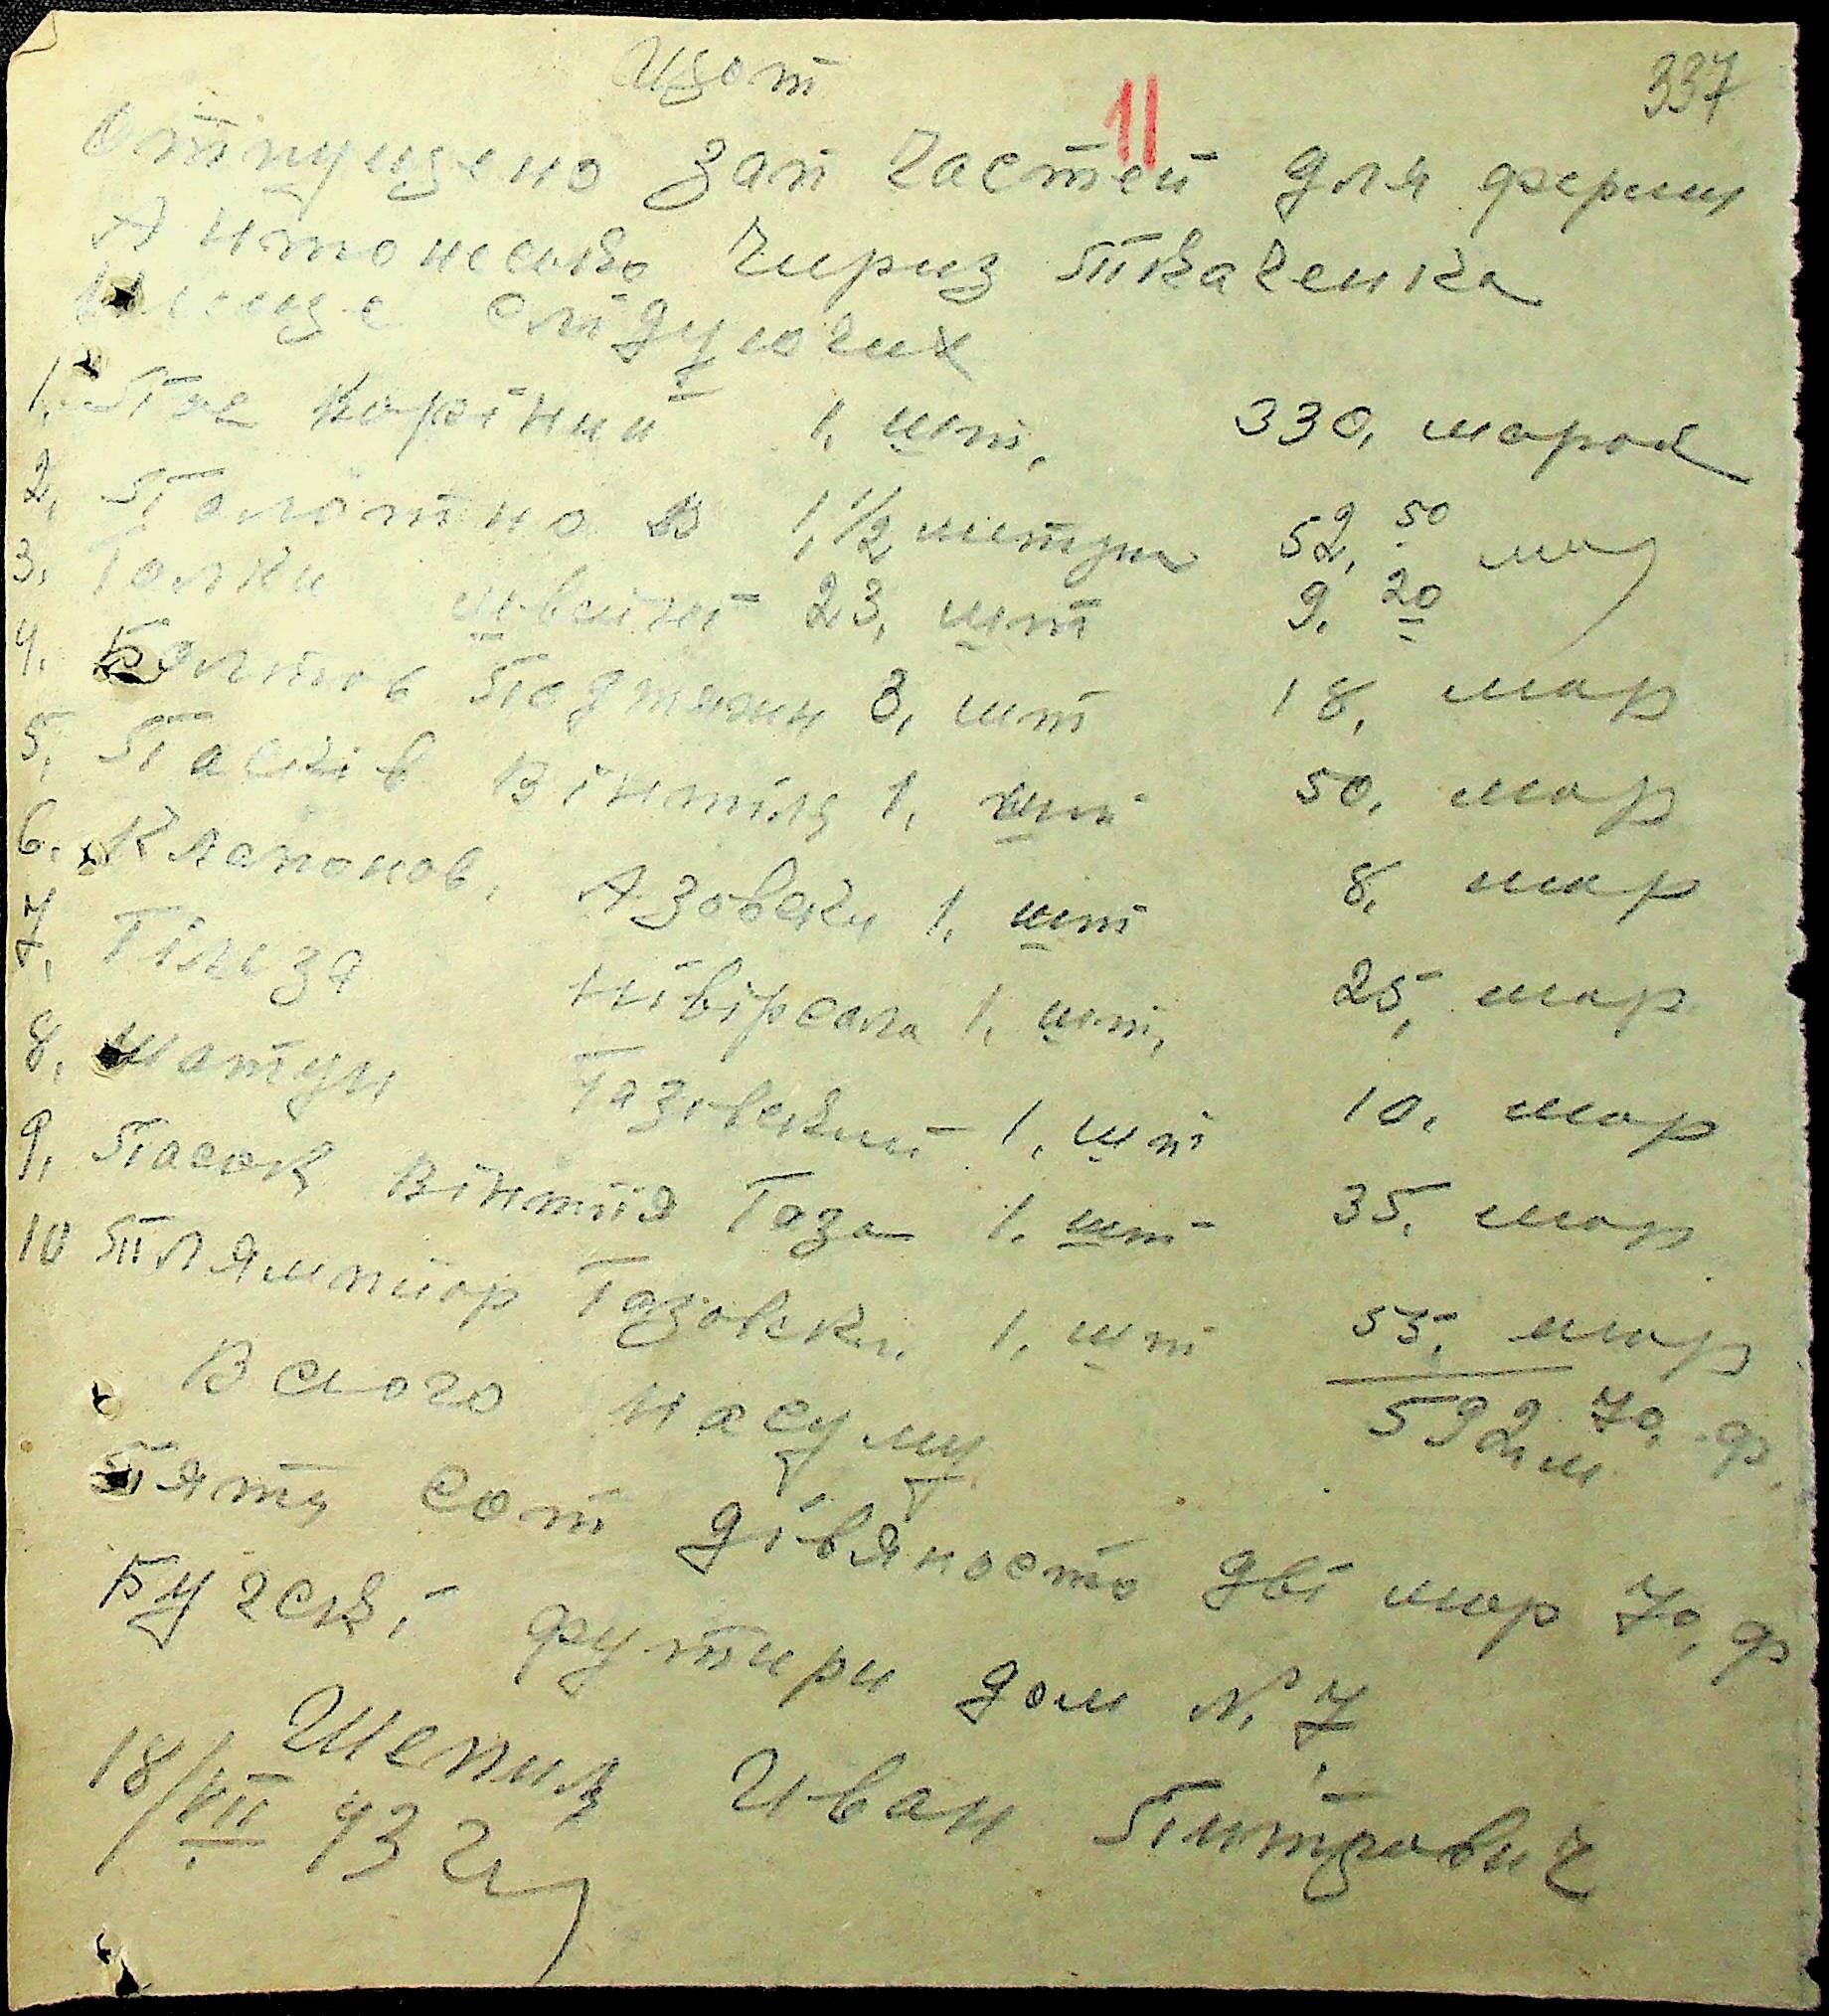 Щот
337
11
Отпущено зап частей для ферми
Антонєсько чириз Ткаченка
слідуючих
1, Пас корінии 1, шт, 330, марок
2, Полотно в 1, 1/2 метри 52, 50 мар
3, Голки швеині 23, шт 9, 20
4. Болтов Подтяжн 3, шт 18, мар
5, Пасків Вінтіля 1, шт 50, мар
6. Клапонов, Азовски 1, шт 8, мар
7, Гільза нівірсала 1, шт, 25, мар
8, Шатун Газівский 1, шт 10, мар
9, Пасок Вінтіля Газа 1, шт 35, мар
10 Плямпіор Газовски 1, шт 55, мар
Всього на суму 592 м 70, ф,
Пять сот дівяносто дві мар 70, ф
Бугскі футири дом N. 7
Иван Питрович
18/VII 43 г